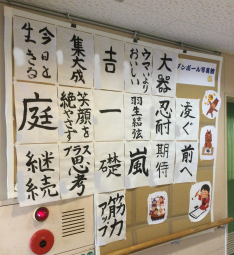 ダンボール写書館
大器
忍耐
期待
凌ぐ
前へ
ウマいより
おいしい
羽生結弦
嵐
吉
一
礎
筋力
アップ
集大成
笑顔を
絶やさず
プラス
思考
今日を
生きる
庭
継続